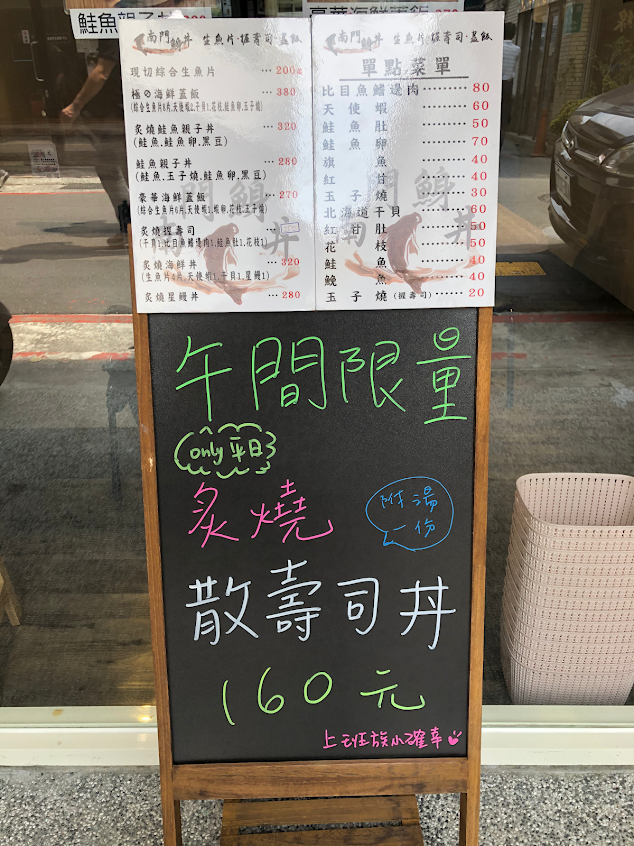 鮭魚親子丼
豪華海鮮蓋飯 270
南門鯓丼 生魚片·握壽司·蓋飯
現切綜合生魚片 ··· 200
極の海鮮蓋飯 ··· 380
(綜合生魚片8片.天使蝦2.干貝1.花枝.鮭魚卵.玉子燒)
炙燒鮭魚親子丼 ··· 320
(鮭魚.鮭魚卵.黑豆)
鮭魚親子丼 ··· 280
(鮭魚.玉子燒.鮭魚卵.黑豆)
豪華海鮮蓋飯 ··· 270
(綜合生魚片6片.天使蝦1.蝦卵.花枝.玉子燒)
炙燒握壽司 ···
(干貝1.比目魚鰭邊肉1.鮭魚肚1.花枝1)
炙燒海鮮丼 ··· 320
(生魚片4片.天使蝦1.干貝1.星鰻1)
炙燒星鰻丼 ··· 280
南門鯓丼 生魚片·握壽司·蓋飯
單點菜單
比目魚鰭邊肉 80
天使蝦 60
鮭魚肚 50
鮭魚卵 70
旗魚 40
紅甘 40
玉子燒 30
北海道干貝 60
紅甘肚 50
花枝 40
鮭魚 40
鮸魚 40
玉子燒(握壽司) 20
午間限量
only 平日
炙燒
附湯
一份
散壽司丼
160元
上班族小確幸